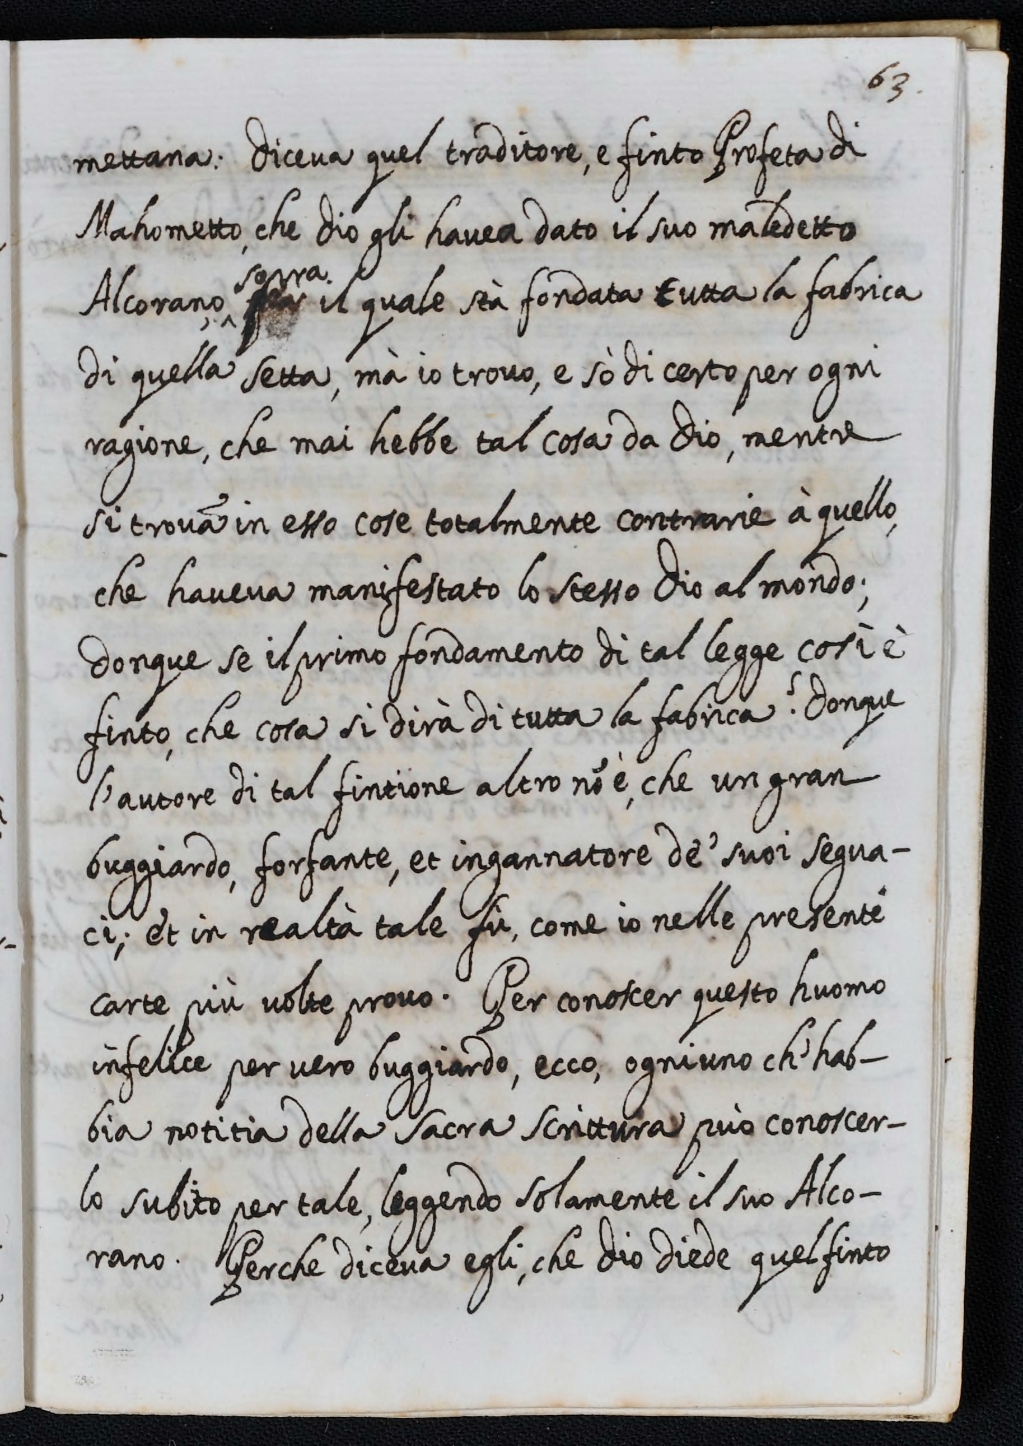 63.
mettana. Diceva quel traditore, e finto Profeta di
Mahometto, che Dio gli havea dato il suo maledetto
sopra
Alcorano, il quale stà fondata tutta la fabrica
di quella setta, mà io trovo, e sò di certo per ogni
ragione, che mai hebbe tal cosa da Dio, mentre
si trovã in esso cose totalmente contrarie à quello,
che haveva manifestato lo stesso Dio al mondo;
donque se il primo fondamento di tal legge così è
finto, che cosa si dirà di tutta la fabrica? Donque
l'autore di tal fintione altro nõ è, che un gran
buggiardo, forfante, et ingannatore de' suoi segua-
ci; et in realtà tale fù, come io nelle presente
carte più volte provo. Per conoscer questo huomo
infelice per vero buggiardo, ecco, ogniuno ch'hab-
bia notitia della Sacra Scrittura può conoscer-
lo subito per tale, leggendo solamente il suo Alco-
rano. Perche diceva egli, che Dio diede quel finto